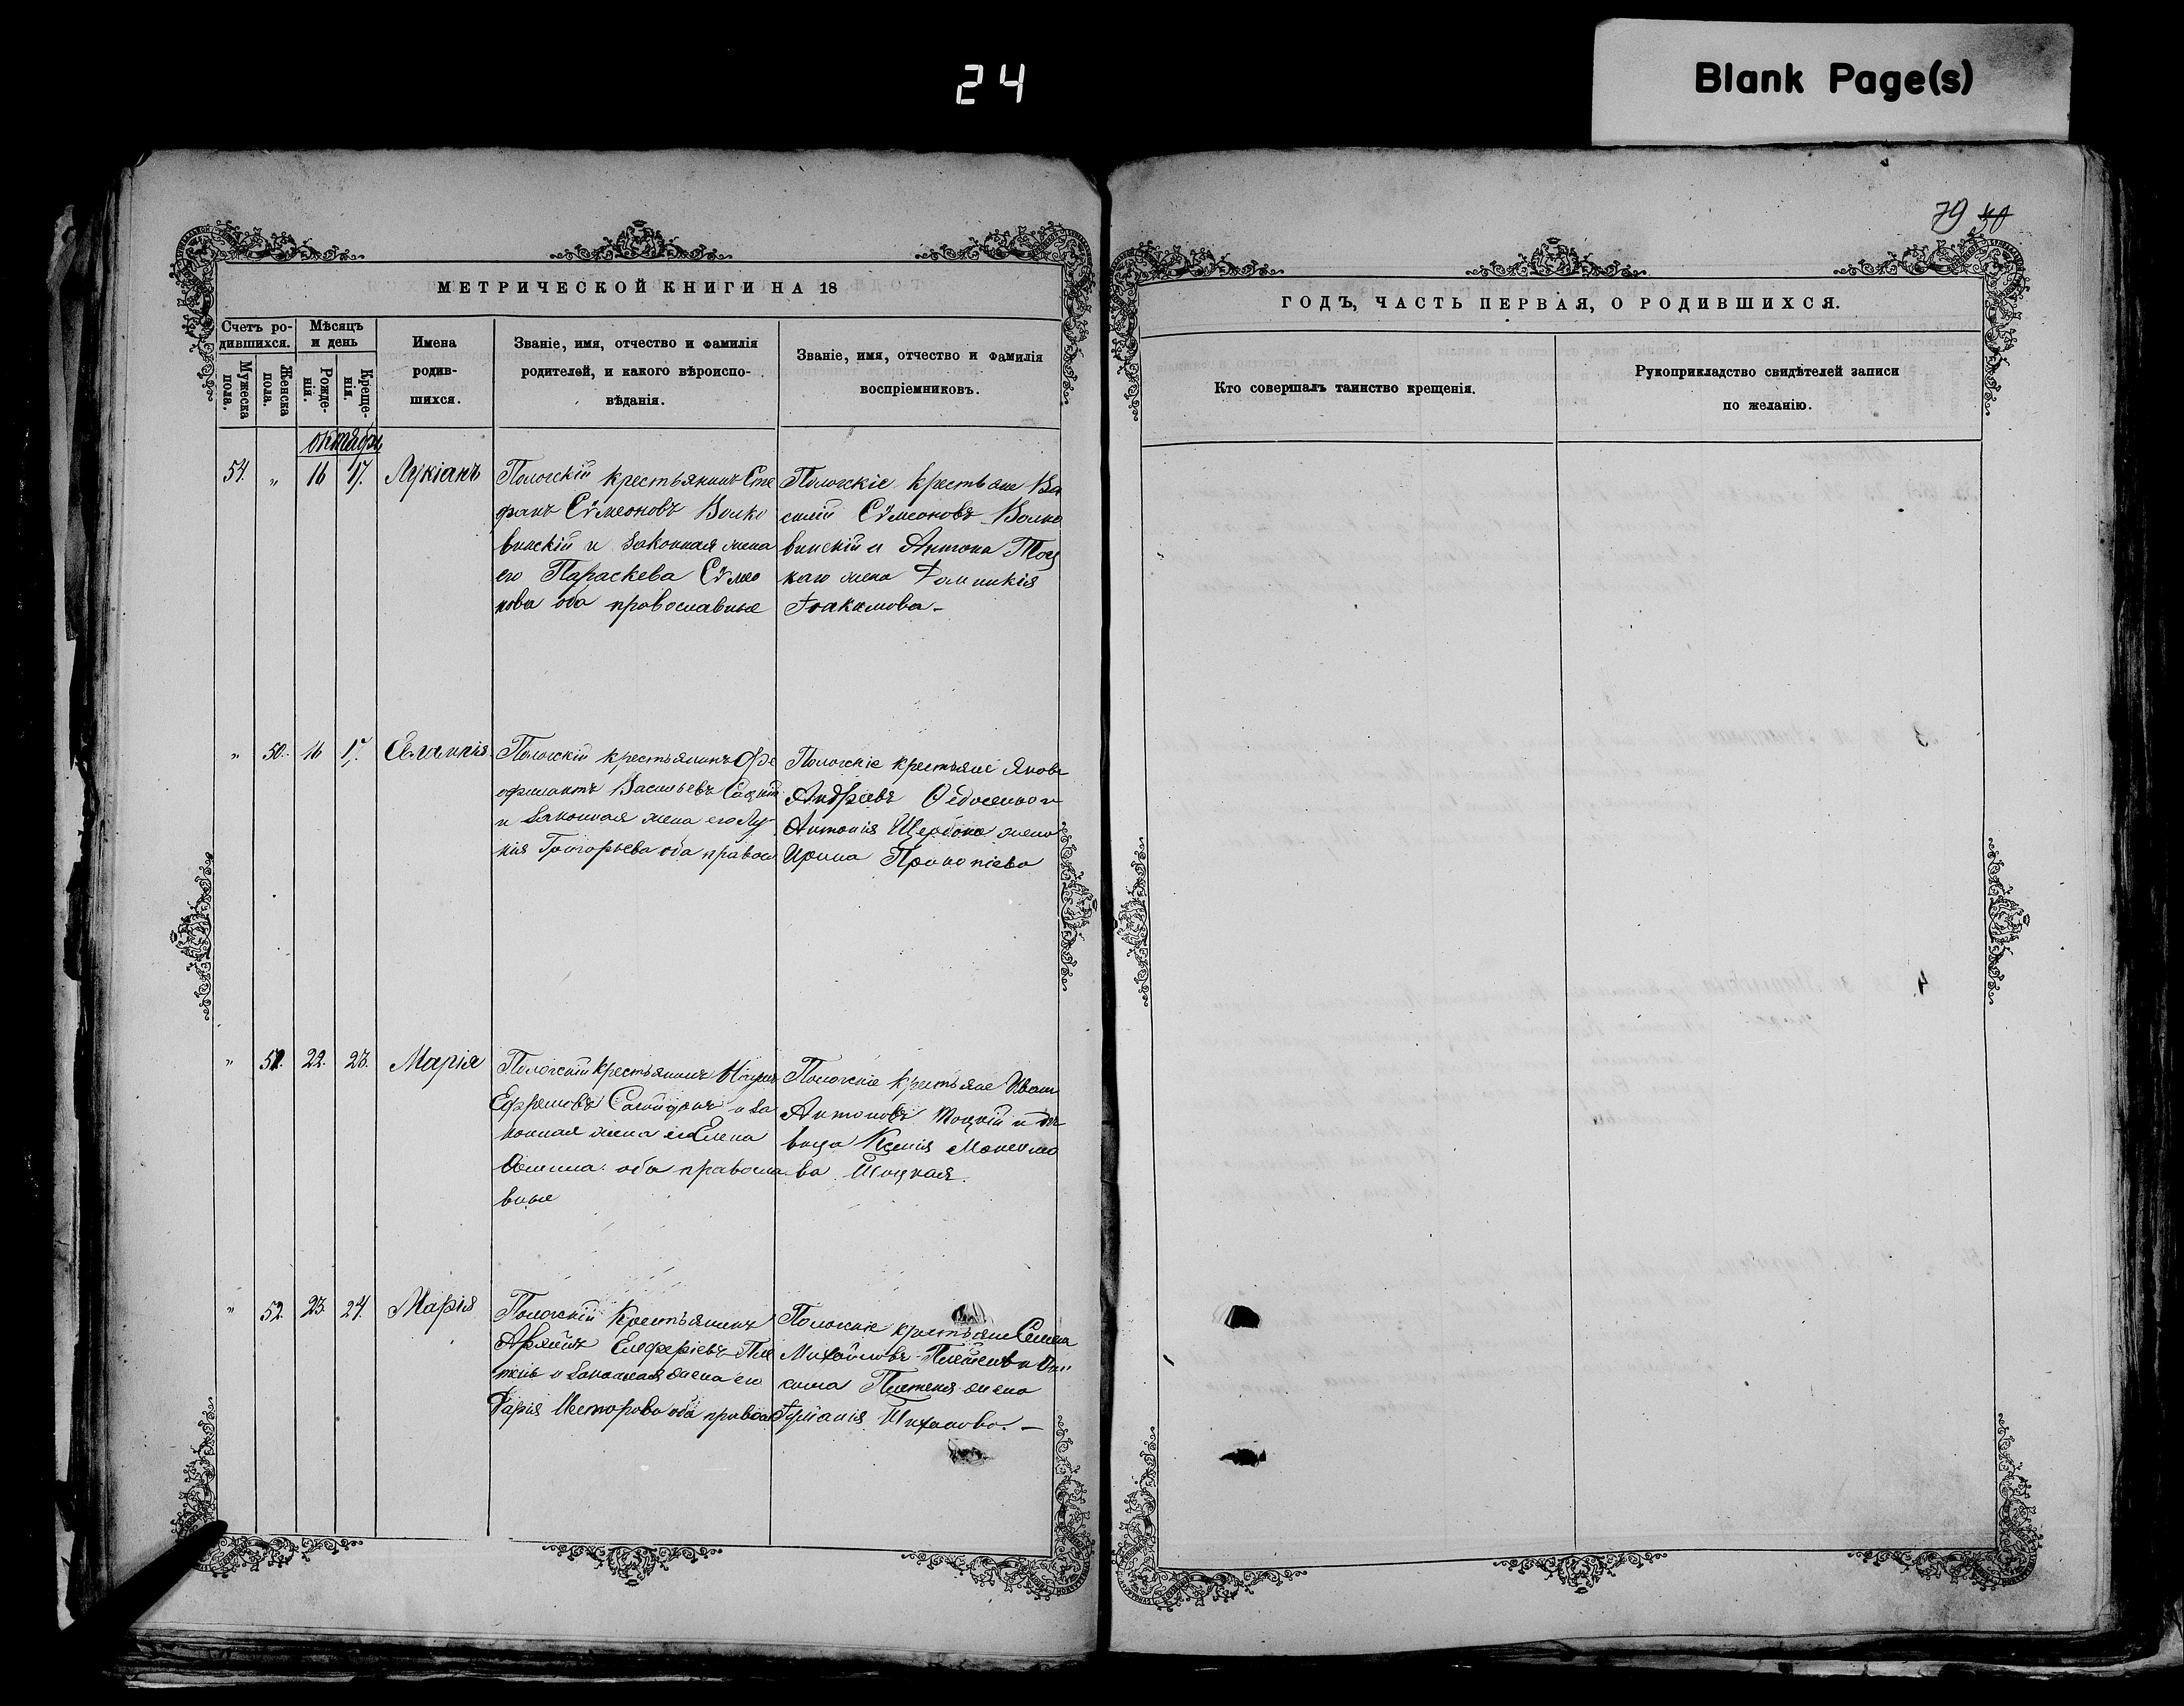 24
Blank Page(s)
79 50
МЕТРИЧЕСКОЙ КНИГИ НА 18
Счетъ ро-
дившихся.
Мужеска
пола.
Женска
пола.
Мѣсяцъ
и день
Рожде-
нія.
Креще-
нія.
Имена
родив-
шихся.
Званіе, имя, отчество и фамилія
родителей, и какого вѣроиспо-
вѣданія.
Званіе, имя, отчество и фамилія
воспріемниковъ.
октябрь
54. " 16 17. Лукіанъ
Пологскій крестьянинъ Сте
фанъ Сѵмеоновъ Волко
винскій и законная жена
его Параскева Сѵмео
нова оба православные
Пологскіе крестьяне Ва
силій Сѵмеоновъ Волко
винскій и Антона Тоц
каго жена Домникія
Іоакимова.-
" 50. 16 17.
Пологскій крестьянинъ Фе
офилактъ Васильевъ
и законная жена его Лу
кія Григорьева оба правосл
Пологскіе крестьяне Яковъ
Андреевъ Федосенко и
Антонія Щербока жена
Ирина Прокопіева
" 51. 22. 23. Марія
Пологскій крестьянинъ
Ефремовъ и за
конная жена его Елена
оба правосла
вные
Пологскіе крестьяне Иванъ
Антоновъ Тоцкій и дѣ
вица Ксенія Максимо
ва Тоцкая.
" 52. 23. 24. Марія
Пологскій крестьянинъ
Елеферіевъ Пле
тень и законная жена его
Дарія Несторова оба правосл
Пологскіе крестьяне
Михайловъ Плетень и Они
сима Плетня жена
Іуліанія
ГОДЪ, ЧАСТЬ ПЕРВАЯ, О РОДИВШИХСЯ.
Кто совершалъ таинство крещенія.
Рукоприкладство свидѣтелей записи
по желанію.